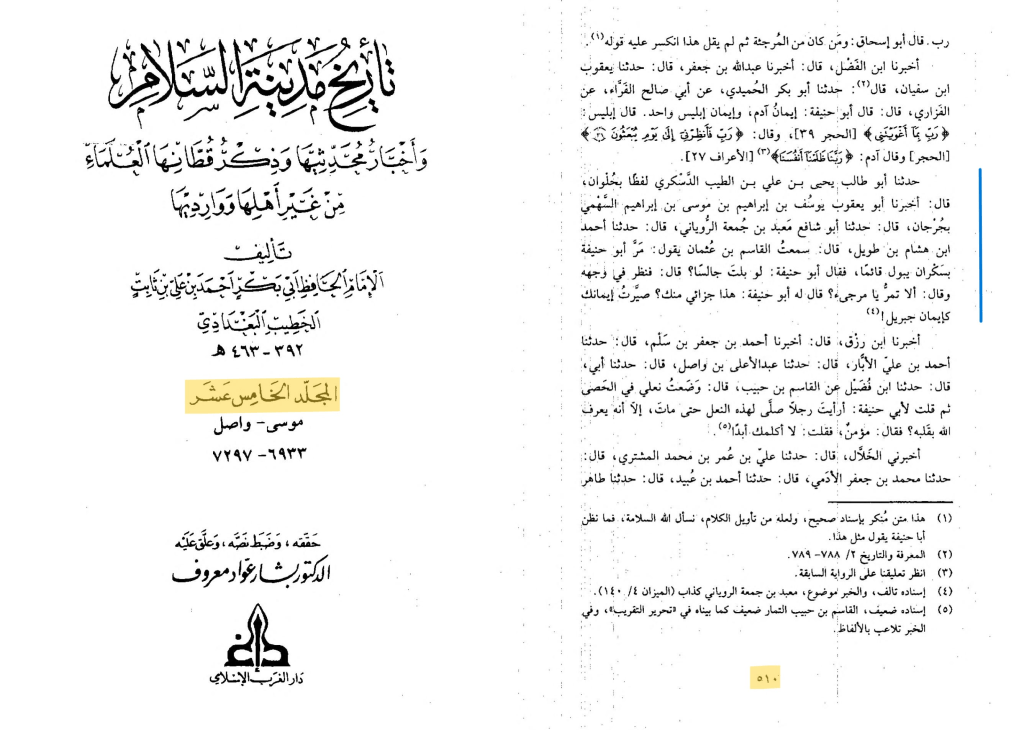 تأريخ مدينة السلام
وأخبار محدثيها وذكر قطانها العلماء
من غير أهلها ووارديها
تأليف
الإمام الحافظ أبي بكر أحمد بن علي بن ثابت
الخطيب البغدادي
٣٩٢ - ٤٦٣ هـ
المجلد الخامس عشر
موسى - واصل
٦٩٣٣ - ٧٢٩٧
حققه، وضبط نصه، وعلق عليه
الدكتور بشار عواد معروف
دار الغرب الإسلامي
رب. قال أبو إسحاق: ومَن كان من المُرجئة ثم لم يقل هذا انكسر عليه قوله(١).
أخبرنا ابن الفَضْل، قال: أخبرنا عبدالله بن جعفر، قال: حدثنا يعقوب
ابن سفيان، قال(٢): حدثنا أبو بكر الحُميدي، عن أبي صالح الفَرَّاء، عن
الفَزاري، قال: قال أبو حنيفة: إيمانُ آدم، وإيمان إبليس واحد. قال إبليس:
﴿رَبِّ بِمَا أَغْوَيْتَنِي﴾ [الحجر ٣٩]، وقال: ﴿رَبِّ فَأَنظِرْنِي إِلَى يَوْمِ يُبْعَثُونَ ﴾
[الحجر] وقال آدم: ﴿رَبَّنَا ظَلَمْنَا أَنفُسَنَا﴾(٣) [الأعراف ٢٧].
حدثنا أبو طالب يحيى بن علي بن الطيب الدَّسْكري لفظًا بحُلوان،
قال: أخبرنا أبو يعقوب يوسُف بن إبراهيم بن موسى بن إبراهيم السَّهْمي
بجُرْجان، قال: حدثنا أبو شافع مَعبد بن جُمعة الرُّوياني، قال: حدثنا أحمد
ابن هشام بن طويل، قال: سمعتُ القاسم بن عُثمان يقول: مَرَّ أبو حنيفة
بسَكْران يبول قائمًا، فقال أبو حنيفة: لو بلتَ جالسًا؟ قال: فنظر في وجهه
وقال: ألا تمرُّ يا مرجىء؟ قال له أبو حنيفة: هذا جزائي منك؟ صيَّرتُ إيمانك
كإيمان جبريل!(٤)
أخبرنا ابن رزْق، قال: أخبرنا أحمد بن جعفر بن سَلْم، قال: حدثنا
أحمد بن عليّ الأبَّار، قال: حدثنا عبدالأعلى بن واصل، قال: حدثنا أبي،
قال: حدثنا ابن فُضَيْل عن القاسم بن حبيب، قال: وَضَعتُ نعلي في الحَصَى
ثم قلت لأبي حنيفة: أرأيتَ رجلاً صلَّى لهذه النعل حتى ماتَ، إلاّ أنه يعرف
الله بقَلبه؟ فقال: مؤمنٌ، فقلت: لا أكلمك أبدًا(٥).
أخبرني الخَلاَّل، قال: حدثنا عليّ بن عُمر بن محمد المشتري، قال:
حدثنا محمد بن جعفر الأدَمي، قال: حدثنا أحمد بن عُبيد، قال: حدثنا طاهر
(١) هذا متن مُنكر بإسناد صحيح، ولعله من تأويل الكلام، نسأل الله السلامة، فما نظن
أبا حنيفة يقول مثل هذا.
(٢) المعرفة والتاريخ ٢/ ٧٨٨- ٧٨٩.
(٣) انظر تعليقنا على الرواية السابقة.
(٤) إسناده تالف، والخبر موضوع، معبد بن جمعة الروياني كذاب (الميزان ٤/ ١٤٠).
(٥) إسناده ضعيف، القاسم بن حبيب التمار ضعيف كما بيناه في «تحرير التقريب»، وفي
الخبر تلاعب بالألفاظ.
٥١٠